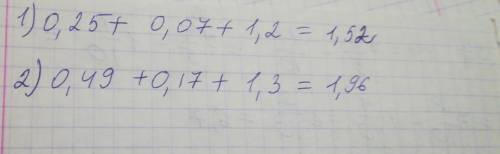 1) 0,25 + 0,07 + 1,2 = 1,52
2) 0,49 + 0,17 + 1,3 = 1,96